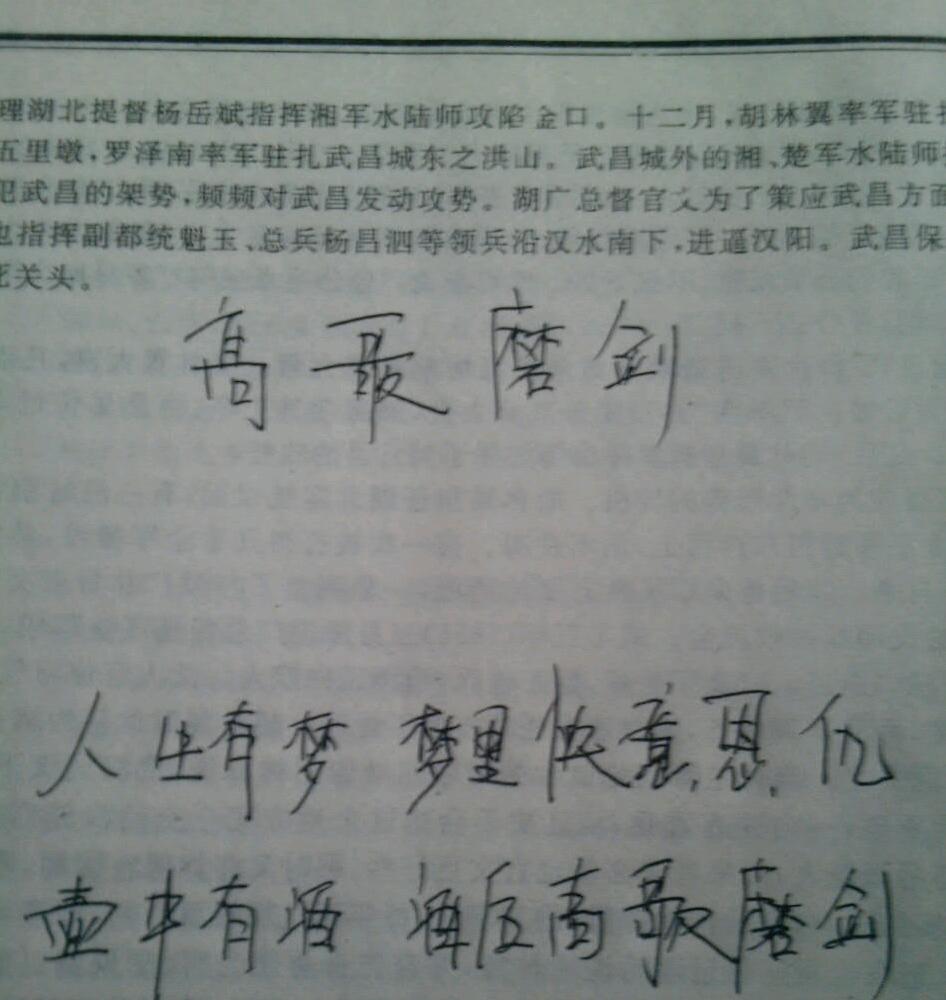 理湖北提督杨岳斌指挥湘军水陆师攻陷金口。十二月，胡林翼率军驻扎
五里墩，罗泽南率军驻扎武昌城东之洪山。武昌城外的湘、楚军水陆师
犯武昌的架势，频频对武昌发动攻势。湖广总督官文为了策应武昌方面
也指挥副都统魁玉、总兵杨昌泗等领兵沿汉水南下，进逼汉阳。武昌保
死关头。
高歌磨剑
人生有梦 梦里快意恩仇
壶中有酒 酒后高歌磨剑